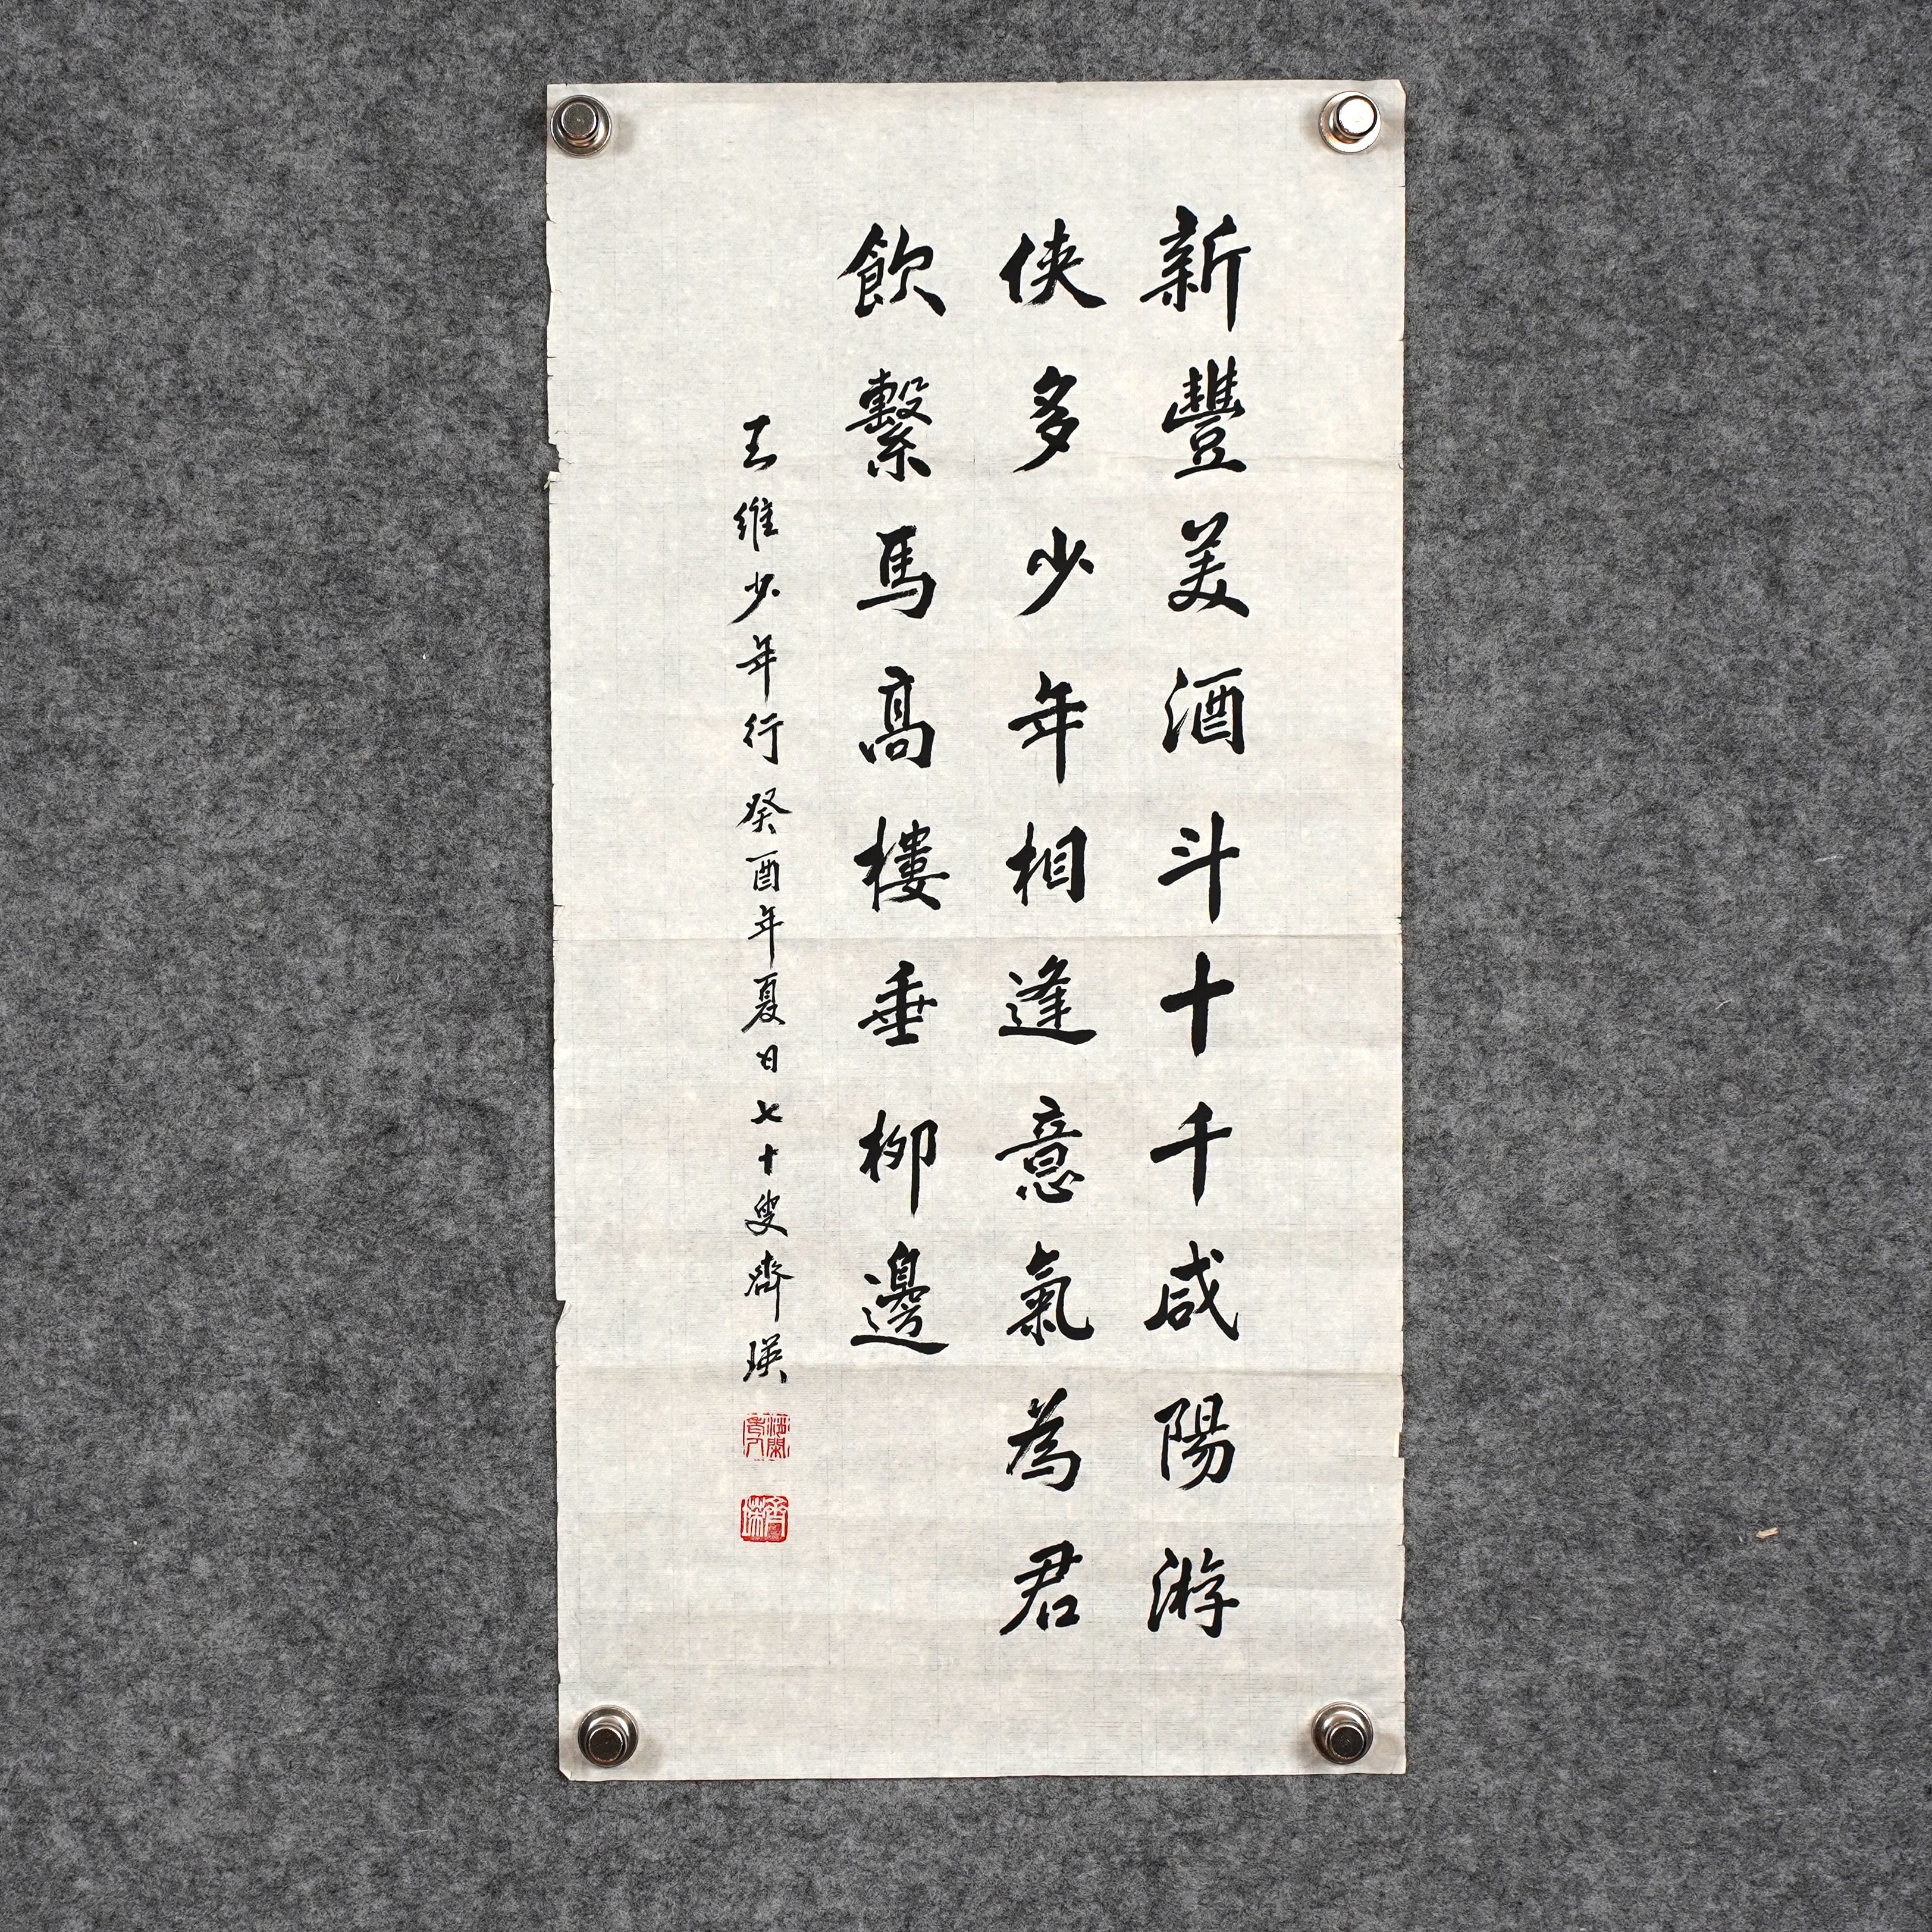 新豐美酒斗十千咸陽游
俠多少年相逢意氣為君
飲繫馬高樓垂柳邊
王維少年行癸酉年夏日七十叟齊瑛